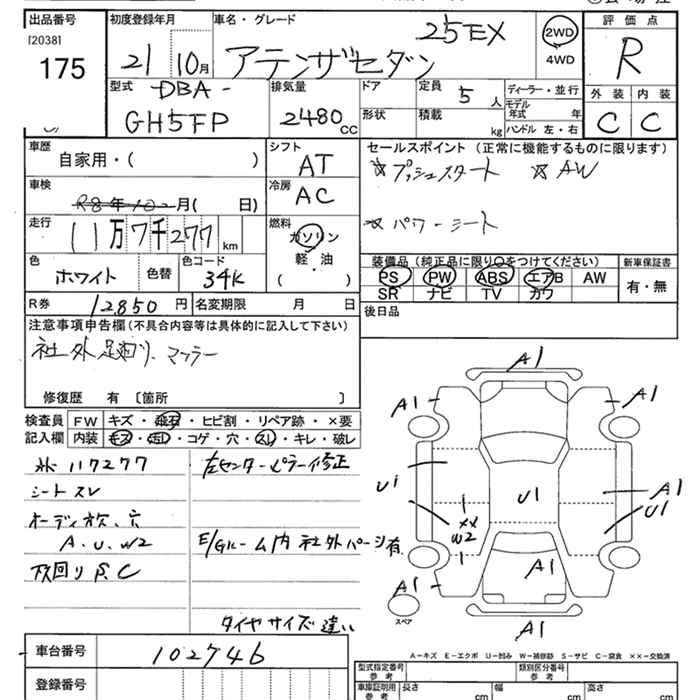 出品番号 初度登録年月 車名・グレード 評価点
[2038]
175
21 10月 アテンザセダン 25EX 2WD 4WD R
型式 排気量 ドア 定員 5人 ディーラー・並行
DBA-
GH5FP 2480cc 形状 積載 kg モデル年式 年
ハンドル 左・右
外装 内装
C C
車歴 自家用・( ) シフト AT
セールスポイント(正常に機能するものに限ります)
☆プッシュスタート ☆AW
車検 R8年10月( 日) 冷房 AC
☆パワーシート
走行 11万7千277km 燃料 ガソリン・軽油 ( )
色 ホワイト 色替 色コード 34K
装備品(純正品に限り○をつけてください) 新車保証書
PS PW ABS エアB AW 有・無
SR ナビ TV カワ
R券 12,850円 名変期限 月 日
後日品
注意事項申告欄(不具合内容等は具体的に記入して下さい)
社外足回り、マフラー
修復歴 有 〔箇所 〕
検査員記入欄 FW キズ・飛石・ヒビ割・リペア跡・×要
内装 キズ・汚レ・コゲ・穴・スレ・キレ・破レ
117277 左センターピラー修正
シートスレ
オーディオ欠、穴
A.U.W2 E/Gルーム内社外パーツ有
下回りS.C
タイヤサイズ違い
A1
A1 A1
U1 U1 A1
U1
XX
W2
A1
A1
A1
スペア
A-キズ E-エクボ U-凹み W-補修跡 S-サビ C-腐食 ××-交換済
車台番号 102746
型式指定番号 参考 類別区分番号 参考
登録番号
車庫証明用 参考 長さ cm 幅 cm 高さ cm